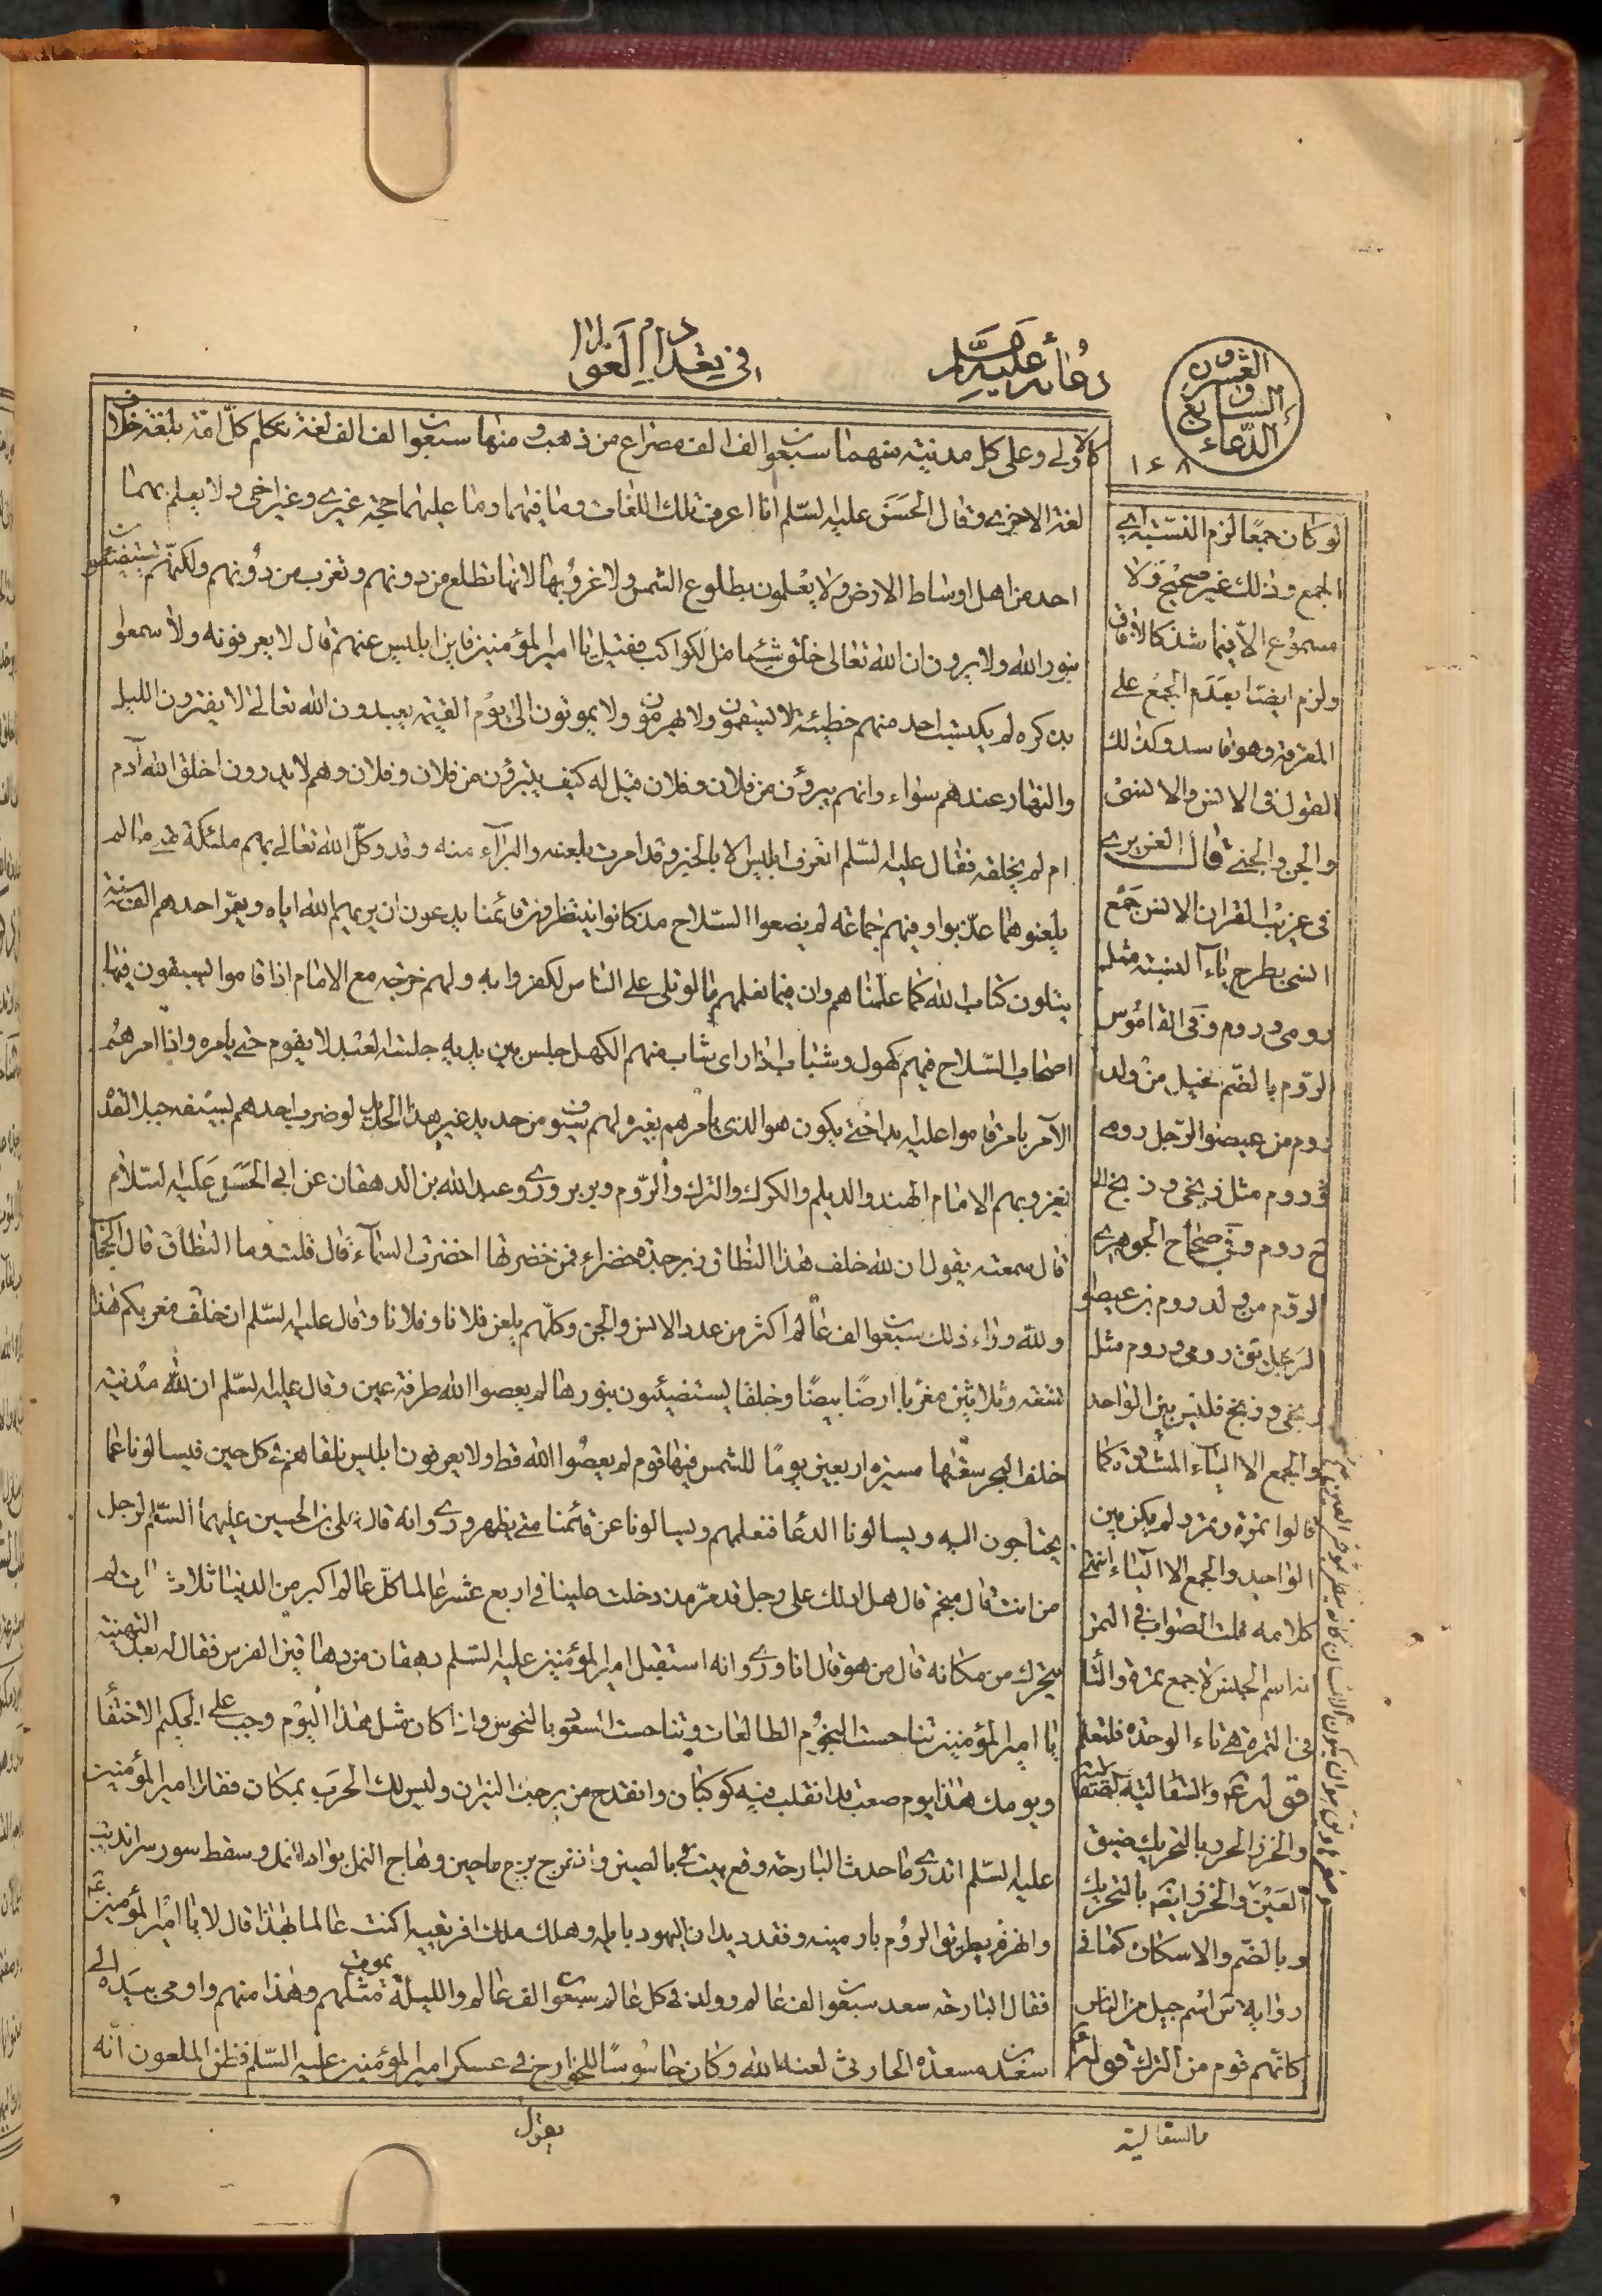 دعائه عليه السلم
في تعداد العوالم
الدعاء السابع والعشرون
١٤٨
كالاولى وعلى كل مدينة منهما سبعون الف الف مصراع من ذهب ومنها سبعون الف الف لغة تكلم كل امة بلغة خلاف
لغة الاخرى وقال الحسن عليه السلم انا اعرف تلك اللغات وما فيهما وما عليهما حجة غيري وغير اخي ولا يعلم بهما
احد من اهل اوساط الارض ولا يعلمون بطلوع الشمس ولا غروبها لانها تطلع من دونهم وتغرب من دونهم ولكنهم يستضيئون
بنور الله ولا يرون ان الله تعالى خلق شيئا من الكواكب فقيل يا امير المؤمنين فاين ابليس عنهم قال لا يعرفونه ولا سمعوا
بذكره لم يكتسب احد منهم خطيئة لا يسقمون ولا يهرمون ولا يموتون الى يوم القيمة يعبدون الله تعالى لا يفترون الليل
والنهار عندهم سواء وانهم يبرؤن من فلان وفلان قيل له كيف يتبرؤن من فلان وفلان وهم لا يدرون اخلق الله آدم
ام لم يخلقه فقال عليه السلم اتعرف ابليس الا بالخبر وقد امرت بلعنه والبرآء منه وقد وكل الله تعالى بهم ملئكة متى ما لم
يلعنوهما عذبوا وفيهم جماعة لم يضعوا السلاح مذ كانوا ينتظرون قائمنا يدعون ان يريهم الله اياه ويعمر احدهم الف سنة
يتلون كتاب الله كما علمناهم وان فيما نعلمهم ما لو تلى على الناس لكفروا به ولهم خرجة مع الامام اذا قاموا يسبقون فيها
اصحاب السلاح فيهم كهول وشباب اذا راى شاب منهم الكهل جلس بين يديه جلسة العبد لا يقوم حتى يامره واذا امرهم
الآمر بامر قاموا عليه ابدا حتى يكون هو الذي يامرهم بغيره لهم سيوف من حديد غير هذا الحديد لو ضرب احدهم بسيفه جبلا لقد
يغزو بهم الامام الهند والديلم والكرك والترك والروم وبربر وروي وعبد الله بن الدهقان عن ابي الحسن عليه السلام
قال سمعته يقول ان لله خلف هذا النطاق زبرجدة خضراء فمن خضرتها اخضرت السمآء قال قلت وما النطاق قال الحجاب
ولله وراء ذلك سبعون الف عالم اكثر من عدد الانس والجن وكلهم يلعن فلانا وفلانا وقال عليه السلم ان خلف مغربكم هذا
تسعة وثلاثين مغربا ارضا بيضا وخلقا يستضيئون بنورها لم يعصوا الله طرفة عين وقال عليه السلم ان لله مدينة
خلف البحر سعتها مسيرة اربعين يوما للشمس فيها قوم لم يعصوا الله قط ولا يعرفون ابليس نلقاهم في كل حين فيسالونا عما
يحتاجون اليه ويسالونا الدعا فنعلمهم ويسالونا عن قائمنا متى يظهر وروي انه قال علي بن الحسين عليهما السلم لرجل
من انت قال منجم قال هل ادلك على رجل قد مر مذ دخلت علينا في اربع عشر عالما كل عالم اكبر من الدنيا ثلاث مرات لم
يتحرك من مكانه قال من هو قال انا وروي انه استقبل امير المؤمنين عليه السلم دهقان من دهاقين الفرس فقال له بعد التهنية
يا امير المؤمنين تناحست النجوم الطالعات وتناحست السعود بالنحوس واذا كان مثل هذا اليوم وجب على الحكيم الاختفا
ويومك هذا يوم صعب قد انقلب فيه كوكبان وانقدح من برجك النيران وليس لك الحرب بمكان فقال امير المؤمنين
عليه السلم اتدري ما حدث البارحة وقع بيت بالصين وانفرج برج ماجين وهاج النمل بوادي النمل وسقط سور سرانديب
وانهزم بطريق الروم بارمينه وفقد ديدان اليهود بايله وهلك ملك افريقيه اكنت عالما بهذا قال لا يا امير المؤمنين
فقال البارحة سعد سبعون الف عالم وولد في كل عالم سبعون الف عالم والليلة يموت مثلهم وهذا منهم واومى بيده الى
سعد بن مسعدة الحارثي لعنه الله وكان جاسوسا للخوارج في عسكر امير المؤمنين عليه السلم فظن الملعون انه
يقول
لو كان جمعا لزم النسبة الى
الجمع وذلك غير صحيح ولا
مسموع الا فيما شذ كالافاقي
ولزم ايضا بعدم الجمع على
المفرد وهو فاسد وكذلك
القول في الانس والانسي
والجن والجني قال العزيزي
في غريب القران الانس جمع
انسي بطرح ياء النسبة مثل
رومي وروم وفي القاموس
الروم بالضم جيل من ولد
روم من عيصو الرجل رومي
ج روم مثل زنجي وزنج
وفي صحاح الجوهري
الروم من ولد روم بن عيصو
يق رومي وروم مثل
زنجي وزنج فليس بين الواحد
والجمع الا الياء المشددة كما
قالوا تمرة وتمر ولم يكن بين
الواحد والجمع الا الهاء انتهى
كلامه قلت الصواب في التمر
انه اسم الجنس لا جمع تمرة والتا
في التمرة هي تاء الوحدة فليعلم
قوله ع والسقالبة
والخزر الخزر بالتحريك ضيق
العين والخزر ايضا بالتحريك
وبالضم والاسكان كما في
رواية س اسم جيل من الناس
كانهم قوم من الترك قوله
والسقالبة